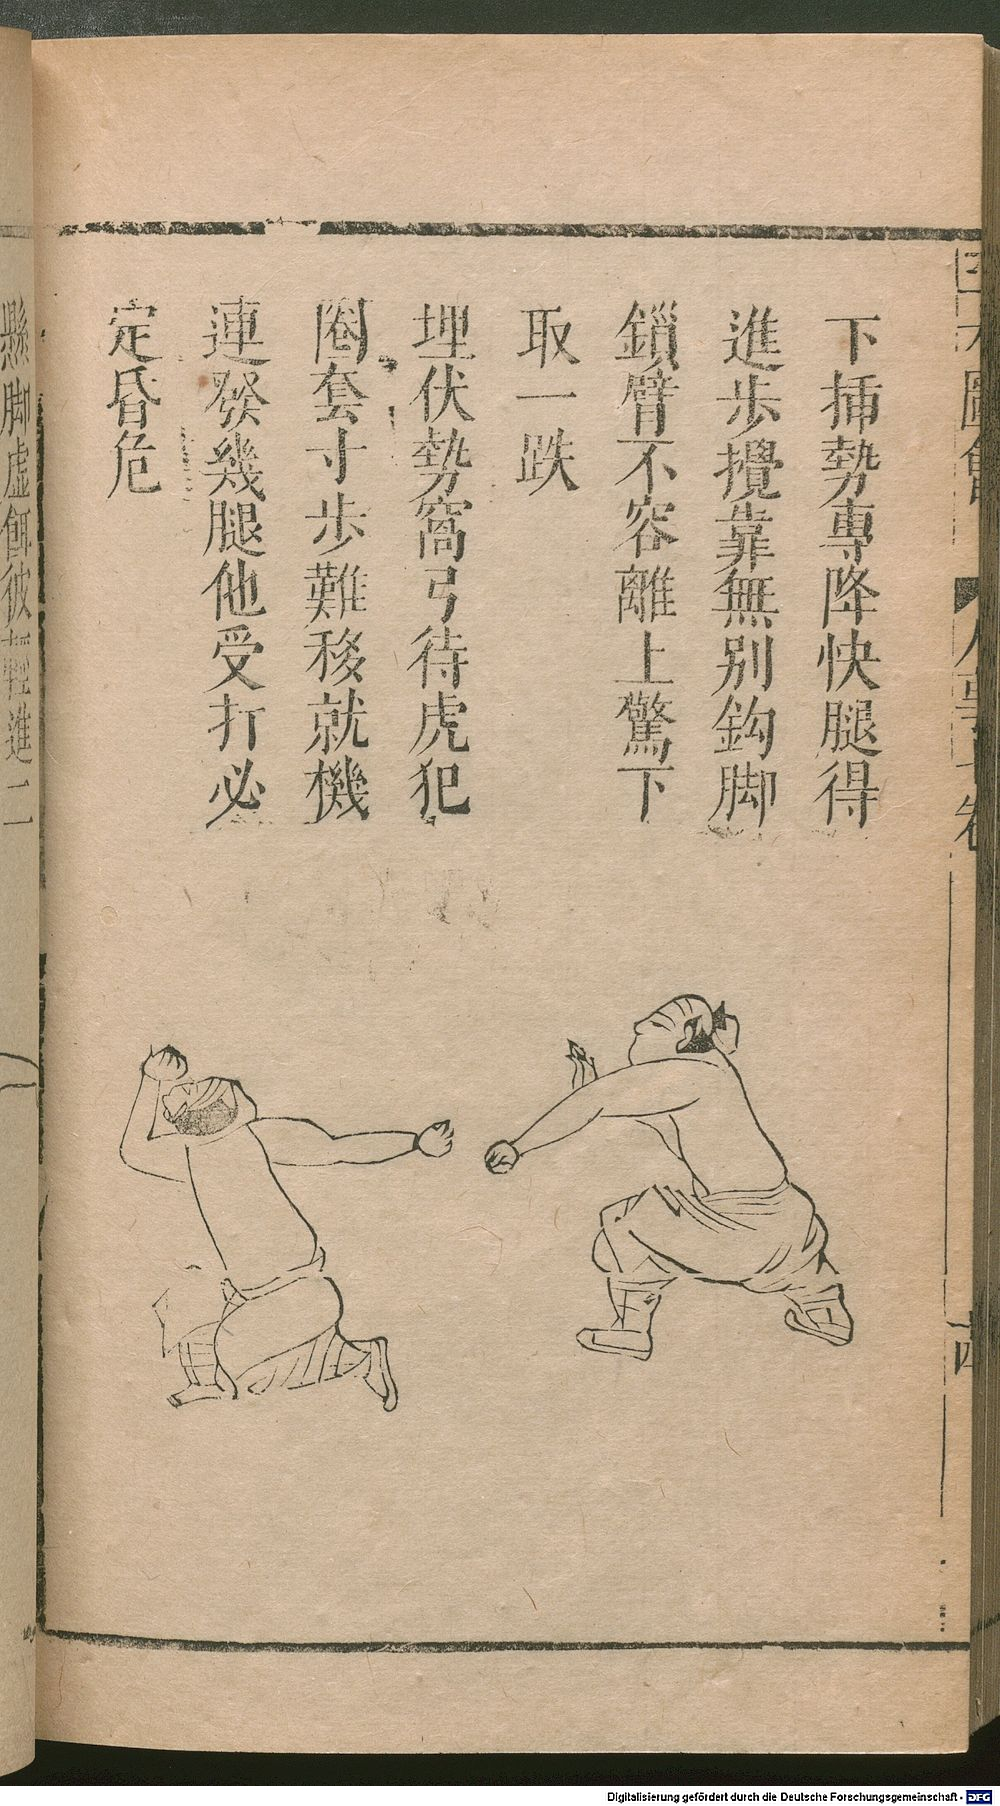 下揷勢專降快腿得
進步攪靠無別鈎脚
鎖臂不容離上驚下
取一跌
埋伏勢窩弓待虎犯
圈套寸步難移就機
連發幾腿他受打必
定昏危
懸脚虛餌彼輕進二
Digitalisierung gefördert durch die Deutsche Forschungsgemeinschaft - DFG